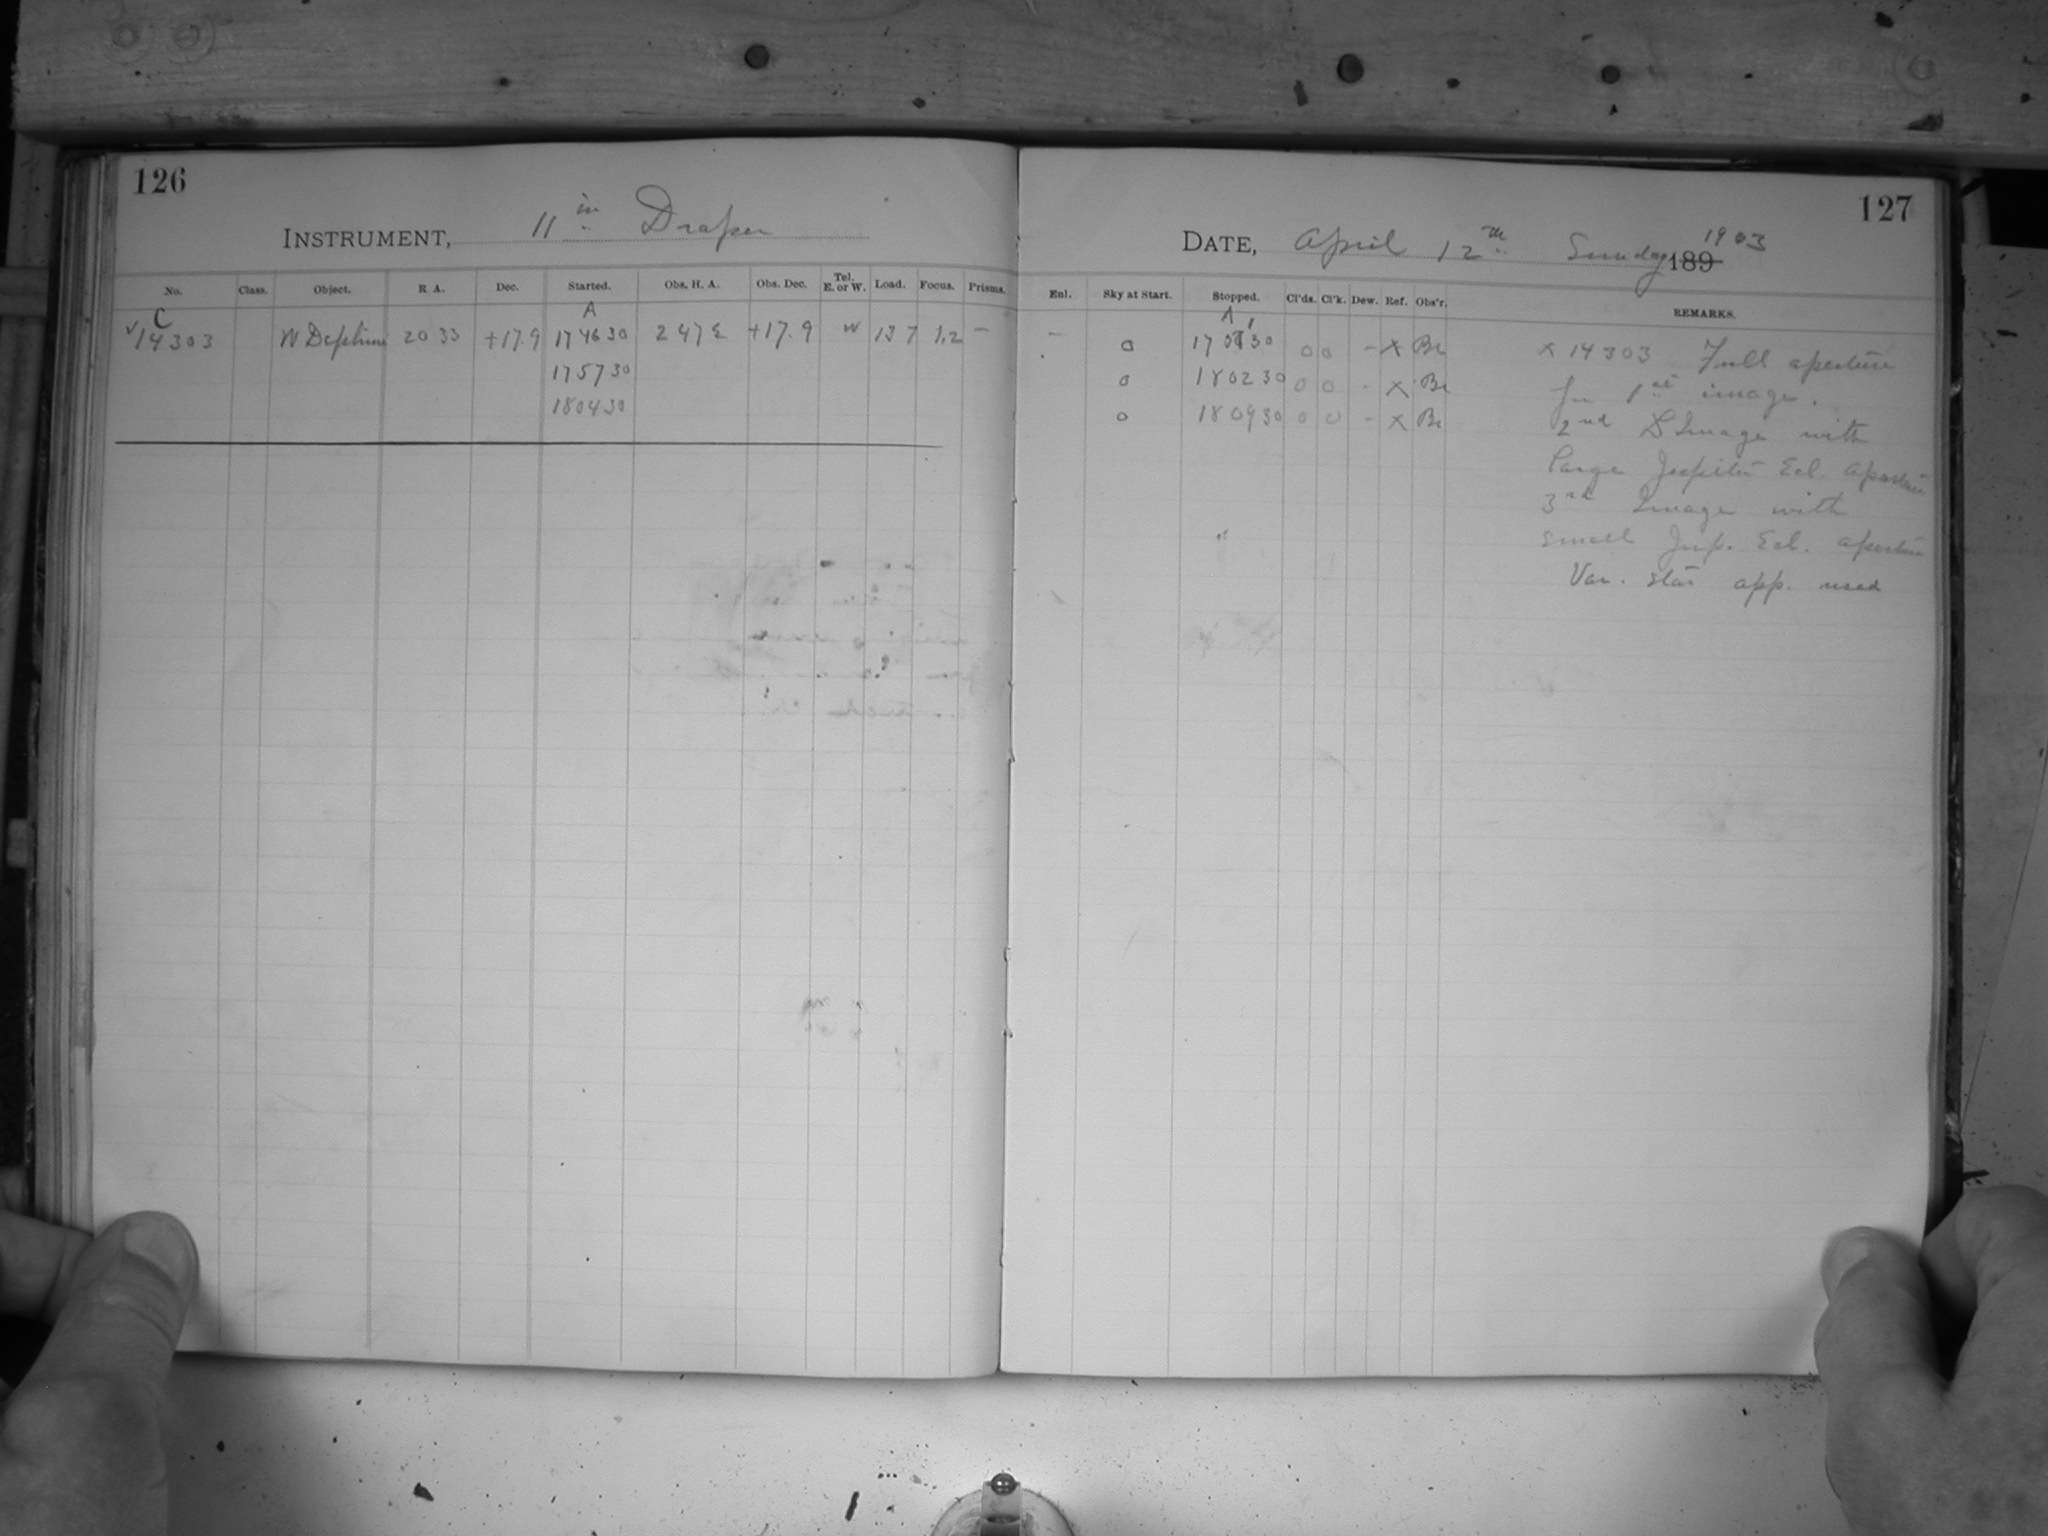 126
INSTRUMENT, 11 in Draper
No. Class. Object. R A. Dec. Started. Obs. H. A. Obs. Dec. Tel. E. or W. Load. Focus. Prisms.
C A
√14303 W Delphini 20 33 +17.9 17 46 30 2 47 E +17.9 W 13 7 1.2 —
17 57 30
18 04 30
127
DATE, April 12th Sunday 189 1903
Enl. Sky at Start. Stopped. Cl'ds. Cl'k. Dew. Ref. Obs'r. REMARKS.
A
— 0 17 30 0 0 - X Br x 14303 Full aperture
0 18 02 30 0 0 - X Br for 1st image.
0 18 09 30 0 0 - X Br 2nd Image with
large Jupiter Ecl. aperture
3rd Image with
small Jup. Ecl. aperture
Var. star app. used